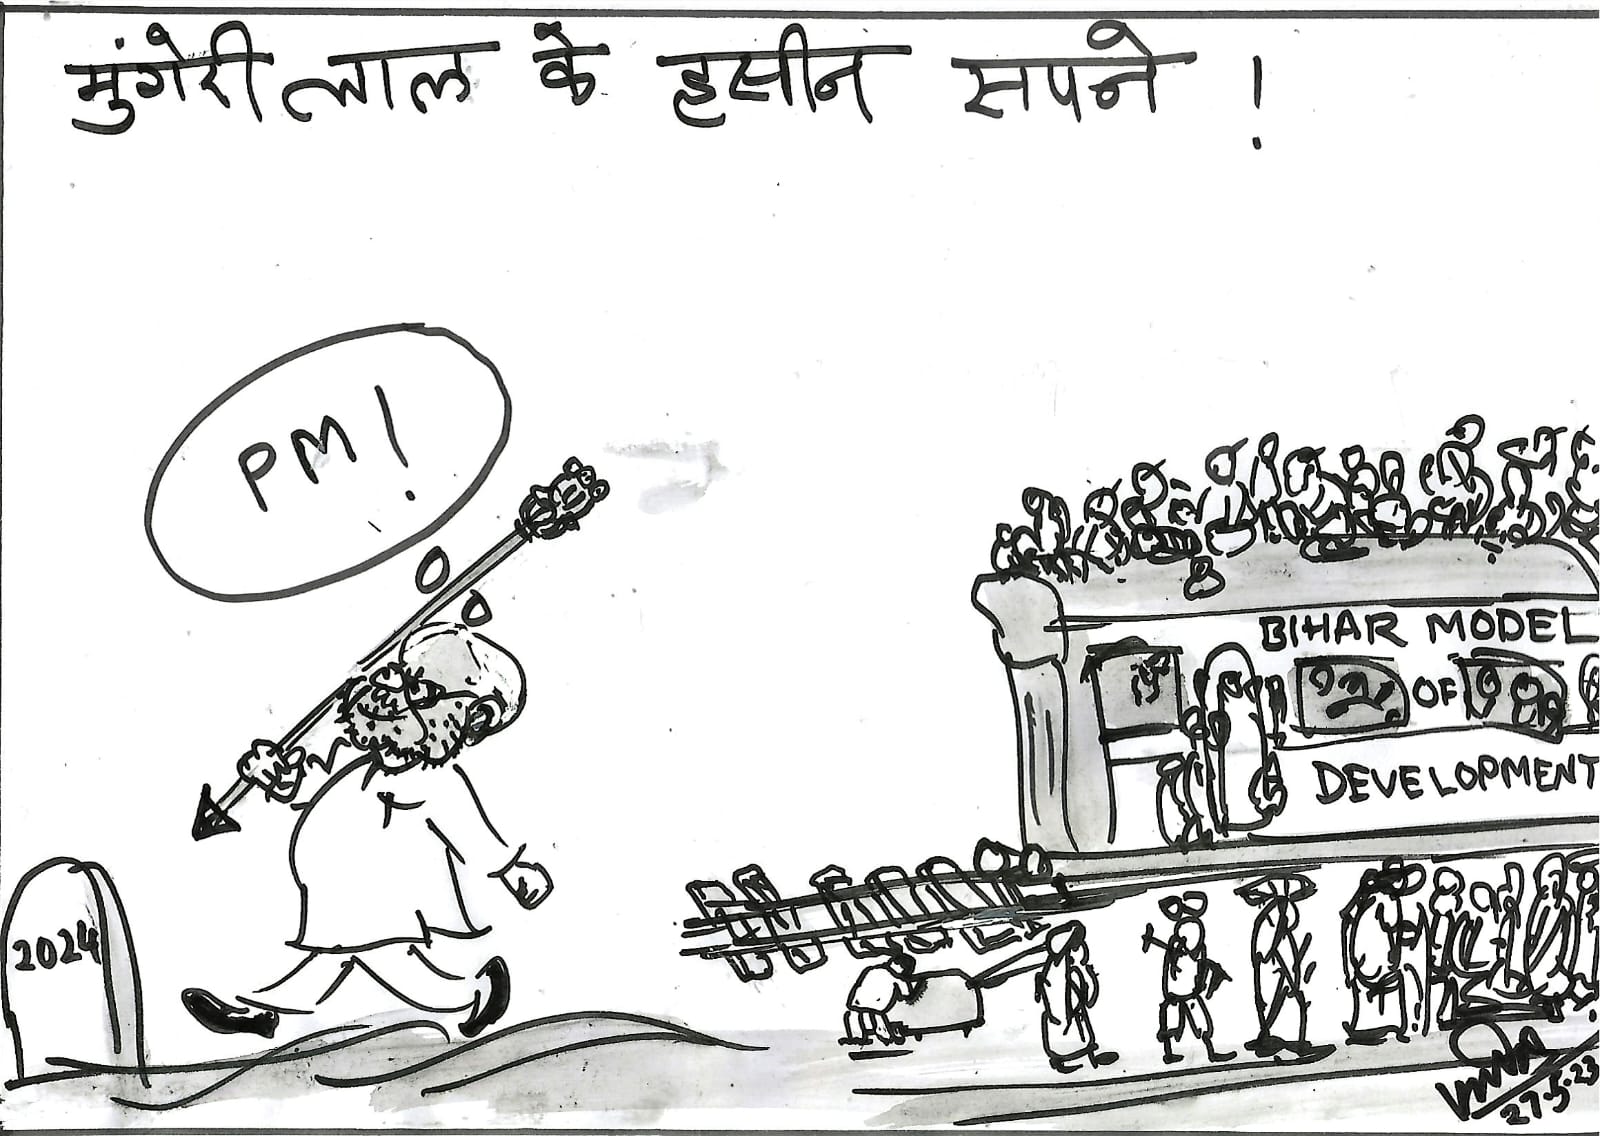 मुंगेरी लाल के हसीन सपने !
PM!
BIHAR MODEL
OF
DEVELOPMENT
2024
27.5.23